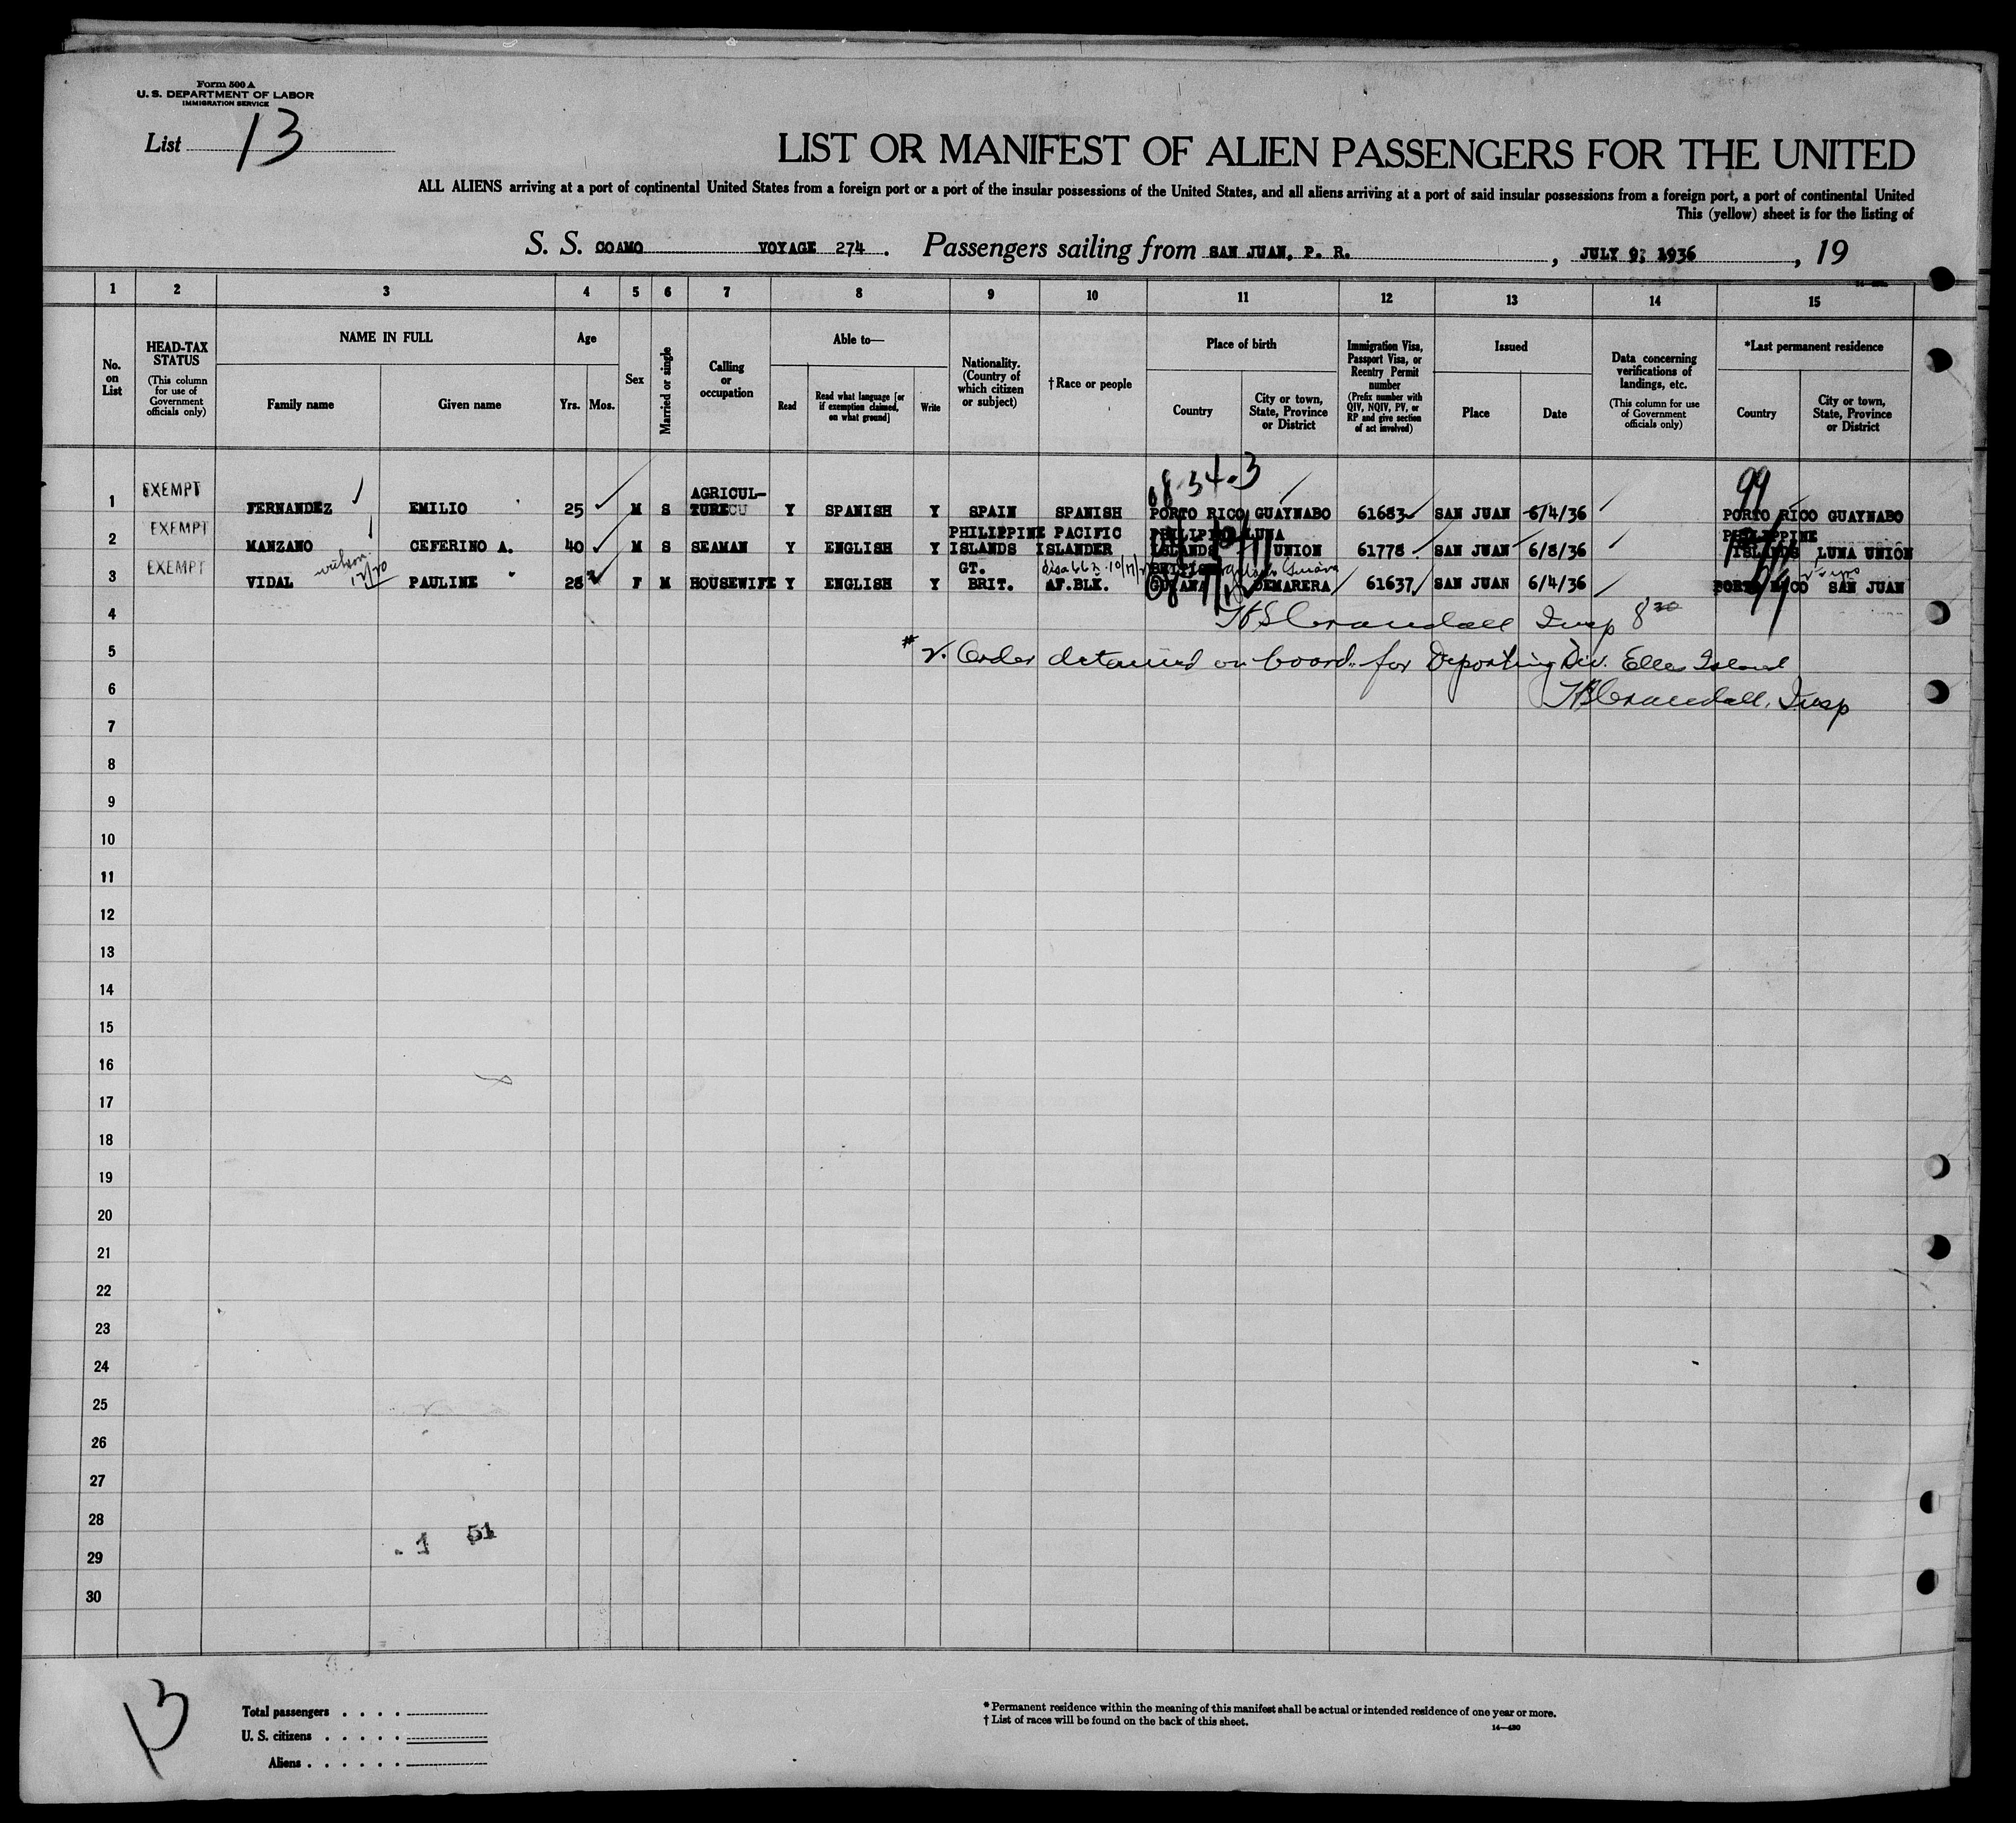 Form 500 A
U. S. DEPARTMENT OF LABOR
IMMIGRATION SERVICE
List 13
LIST OR MANIFEST OF ALIEN PASSENGERS FOR THE UNITED
ALL ALIENS arriving at a port of continental United States from a foreign port or a port of the insular possessions of the United States, and all aliens arriving at a port of said insular possessions from a foreign port, a port of continental United
This (yellow) sheet is for the listing of
S. S. COAMO VOYAGE 274. Passengers sailing from SAN JUAN, P. R., JULY 9, 1936, 19
1 2 3 4 5 6 7 8 9 10 11 12 13 14 15
No. on List
HEAD-TAX STATUS
(This column for use of Government officials only)
NAME IN FULL
Family name
Given name
Age
Yrs. Mos.
Sex
Married or single
Calling or occupation
Able to—
Read
Read what language [or if exemption claimed, on what ground]
Write
Nationality. (Country of which citizen or subject)
†Race or people
Place of birth
Country
City or town, State, Province or District
Immigration Visa, Passport Visa, or Reentry Permit number
(Prefix number with QIV, NQIV, PV, or RP and give section of act involved)
Issued
Place
Date
Data concerning verifications of landings, etc.
(This column for use of Government officials only)
*Last permanent residence
Country
City or town, State, Province or District
08 34.3 99
1 EXEMPT FERNANDEZ EMILIO 25 M S AGRICUL-TURE Y SPANISH Y SPAIN SPANISH PORTO RICO GUAYNABO 61683 SAN JUAN 6/4/36 PORTO RICO GUAYNABO
2 EXEMPT MANZANO CEFERINO A. 40 M S SEAMAN Y ENGLISH Y PHILIPPINE ISLANDS PACIFIC ISLANDER PHILIPPINE ISLANDS LUNA UNION 61778 SAN JUAN 6/8/36 PHILIPPINE ISLANDS LUNA UNION
3 EXEMPT VIDAL PAULINE 28 F M HOUSEWIFE Y ENGLISH Y GT. BRIT. AF.BLK. GUYANA DEMARERA 61637 SAN JUAN 6/4/36 PORTO RICO SAN JUAN
4 HB Crandall Insp 8 30
5 # 2. Order detained on board for Deporting Div. Ellis Island
6 HB Crandall, Insp
7
8
9
10
11
12
13
14
15
16
17
18
19
20
21
22
23
24
25
26
27
28
. 1 51
29
30
13
Total passengers . . . .
U. S. citizens . . . . .
Aliens . . . . . .
* Permanent residence within the meaning of this manifest shall be actual or intended residence of one year or more.
† List of races will be found on the back of this sheet.
14—430